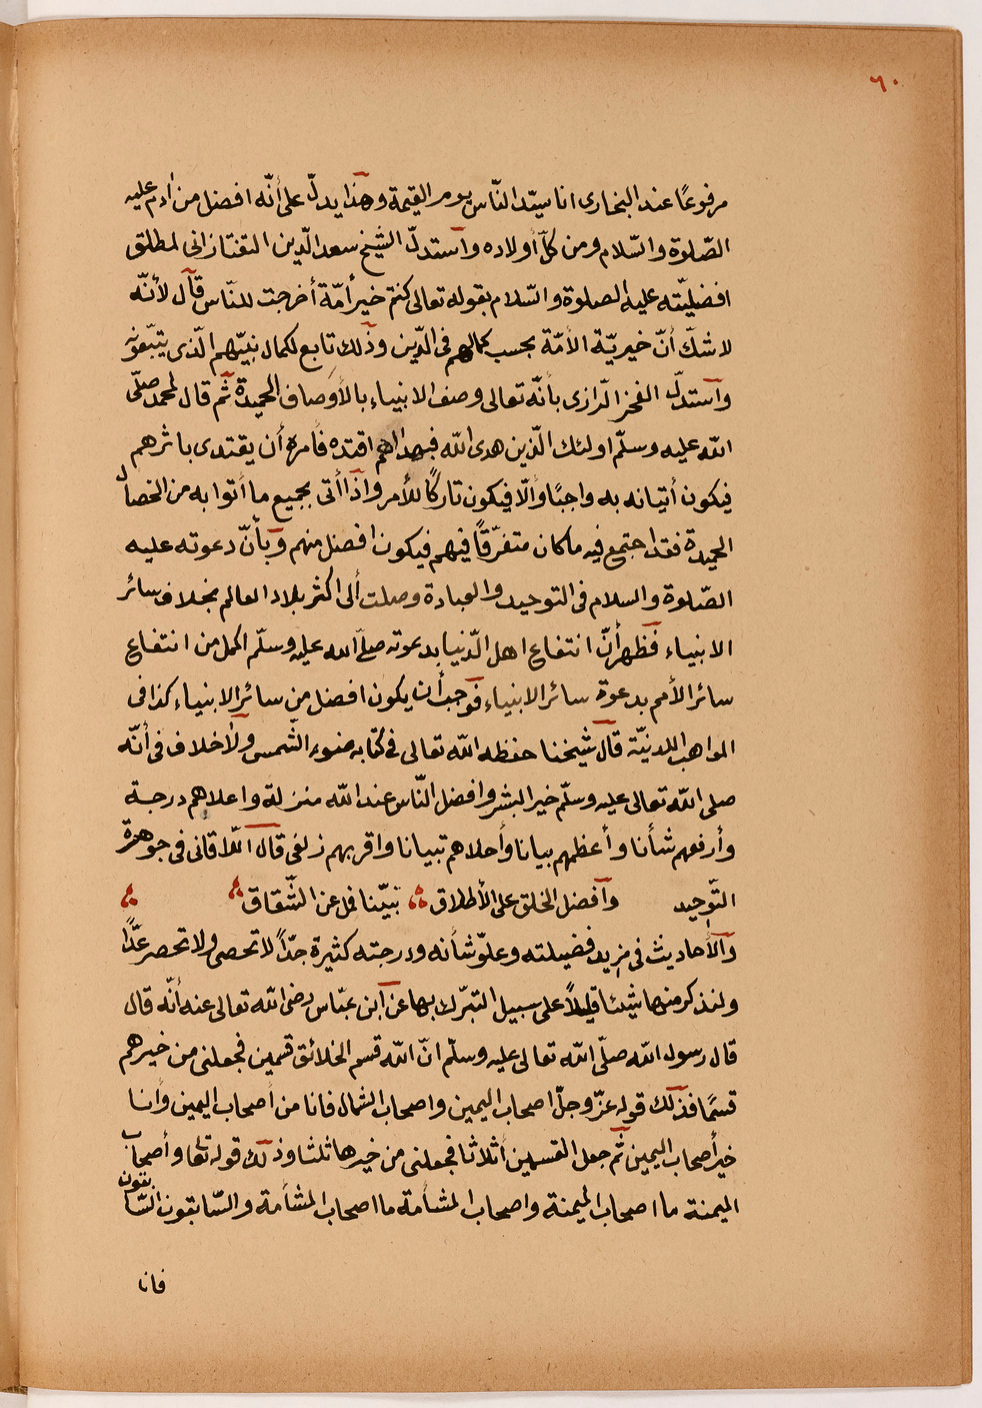 ٦٠
مرفوعًا عند البخارى انا سيّد النّاس يوم القيمة وهذا يدلّ على أنّه افضل من أدم عليه
الصّلوة والسّلام ومن كلّ أولاده وآستدلّ الشيخ سعد الدّين التفتازانى لمطلق
افضليّته عليه الصلوة والسّلام بقوله تعالى كنتم خير أمّة أخرجت للنّاس قآل لأنّه
لا شكّ أنّ خيريّة الأمّة بحسب كمالهم فى الدّين وذلك تابع لكمال نبيّهم الّذى يتبّعونه
وآستدلّ الفخر الرّازى بأنّه تعالى وصف الانبياء بالأوصاف الحميدة ثمّ قال لمحمد صلّى
الله عليه وسلّم اولئك الّذين هدى الله فبهداهم اقتده فأمره أن يقتدى باثرهم
فيكون أتيانه به واجبًا وألّا فيكون تاركًا للأمر واذا أتى بجميع ما أتوا به من الخصال
الحميدة فقد اجتمع فيه ما كان متفرّقًا فيهم فيكون افضل منهم وبأنّ دعوته عليه
الصّلوة والسلام فى التوحيد والعبادة وصلت ألى اكثر بلاد العالم بخلاف سائر
الانبياء فظهر أنّ انتفاع اهل الدّنيا بدعوته صلّى الله عليه وسلّم اكمل من انتفاع
سائر الأمم بدعوة سائر الانبياء فوجب أن يكون افضل من سائر الانبياء كذا فى
المواهب اللدنيّة قال شيخنا حفظه الله تعالى فى كتابه ضوء الشّمس ولأخلاف فى أنّه
صلى الله تعالى عليه وسلّم خير البشر وافضل النّاس عند الله منزلة واعلاهم درجة
وأرفعهم شأنا وأعظمهم بيانا وأحلاهم تبيانا واقربهم زلفى قال اللّاقانى فى جوهرة
التّوحيد وآفضل الخلق على الأطلاق نبيّنا فمل عن الشّقاق
وآلأحاديث فى مزيد فضيلته وعلوّ شأنه ودرجته كثيرة جدًّا لا تحصى ولا تحصر عدًّا
ولنذكر منها شيئا قليلاً على سبيل التبرّك بها عن آبن عبّاس رضى الله تعالى عنه أنّه قال
قال رسول الله صلّى الله تعالى عليه وسلّم انّ الله قسم الخلائق قسمين فجعلنى من خيرهم
قسمًا فذلك قوله عزّ وجلّ اصحاب اليمين واصحاب الشمال فانا من أصحاب اليمين وأنا
خير أصحاب اليمين ثمّ جعل القسمين أثلاثا فجعلنى من خيرها ثلثا وذلك قوله تعا وأصحاب
الميمنة ما اصحاب الميمنة واصحاب المشأمة ما اصحاب المشأمة والسّابقون السّابقون
فانا